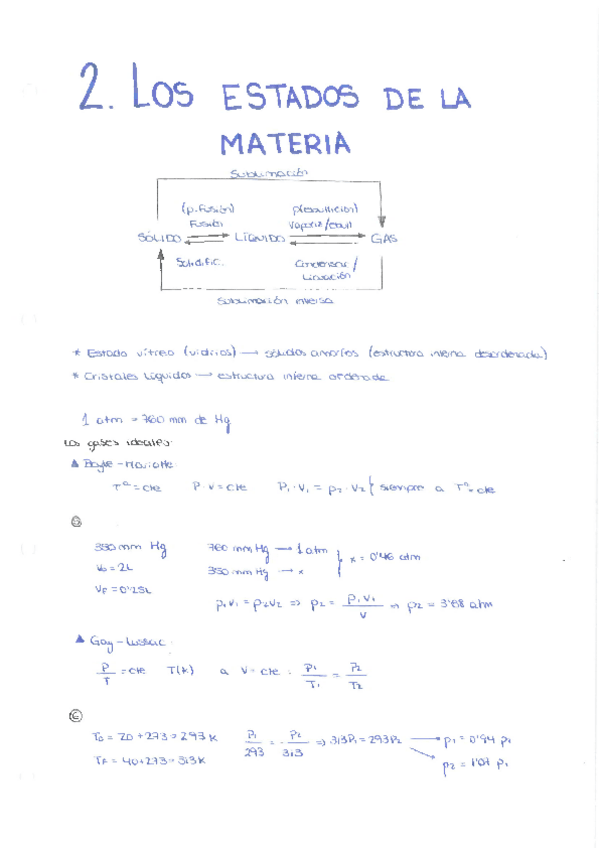 2. LOS ESTADOS DE LA
MATERIA
Sublimación
(p. fusión) p(ebullición)
Fusión Vaporiz/ebull
SÓLIDO LÍQUIDO GAS
Solidific. Condensac/
Licuación
Sublimación inversa
* Estado vítreo (vidrios) → sólidos amorfos (estructura interna desordenada)
* Cristales líquidos → estructura interna ordenada
1 atm = 760 mm de Hg
Los gases ideales:
▲ Boyle-Mariotte:
Tª = cte P·V = cte P₁·V₁ = P₂·V₂ } siempre a Tª = cte
350 mm Hg 760 mm Hg → 1 atm
V₀ = 2L 350 mm Hg → x } x = 0'46 atm
VF = 0'25L
p₁V₁ = p₂V₂ => p₂ = p₁V₁ / V => p₂ = 3'68 atm
▲ Gay-Lussac:
P/T = cte T(K) a V = cte : P₁/T₁ = P₂/T₂
T₀ = 20 + 273 = 293 K P₁/293 = P₂/313 => 313P₁ = 293P₂ → p₁ = 0'94 p₂
TF = 40 + 273 = 313 K p₂ = 1'07 p₁